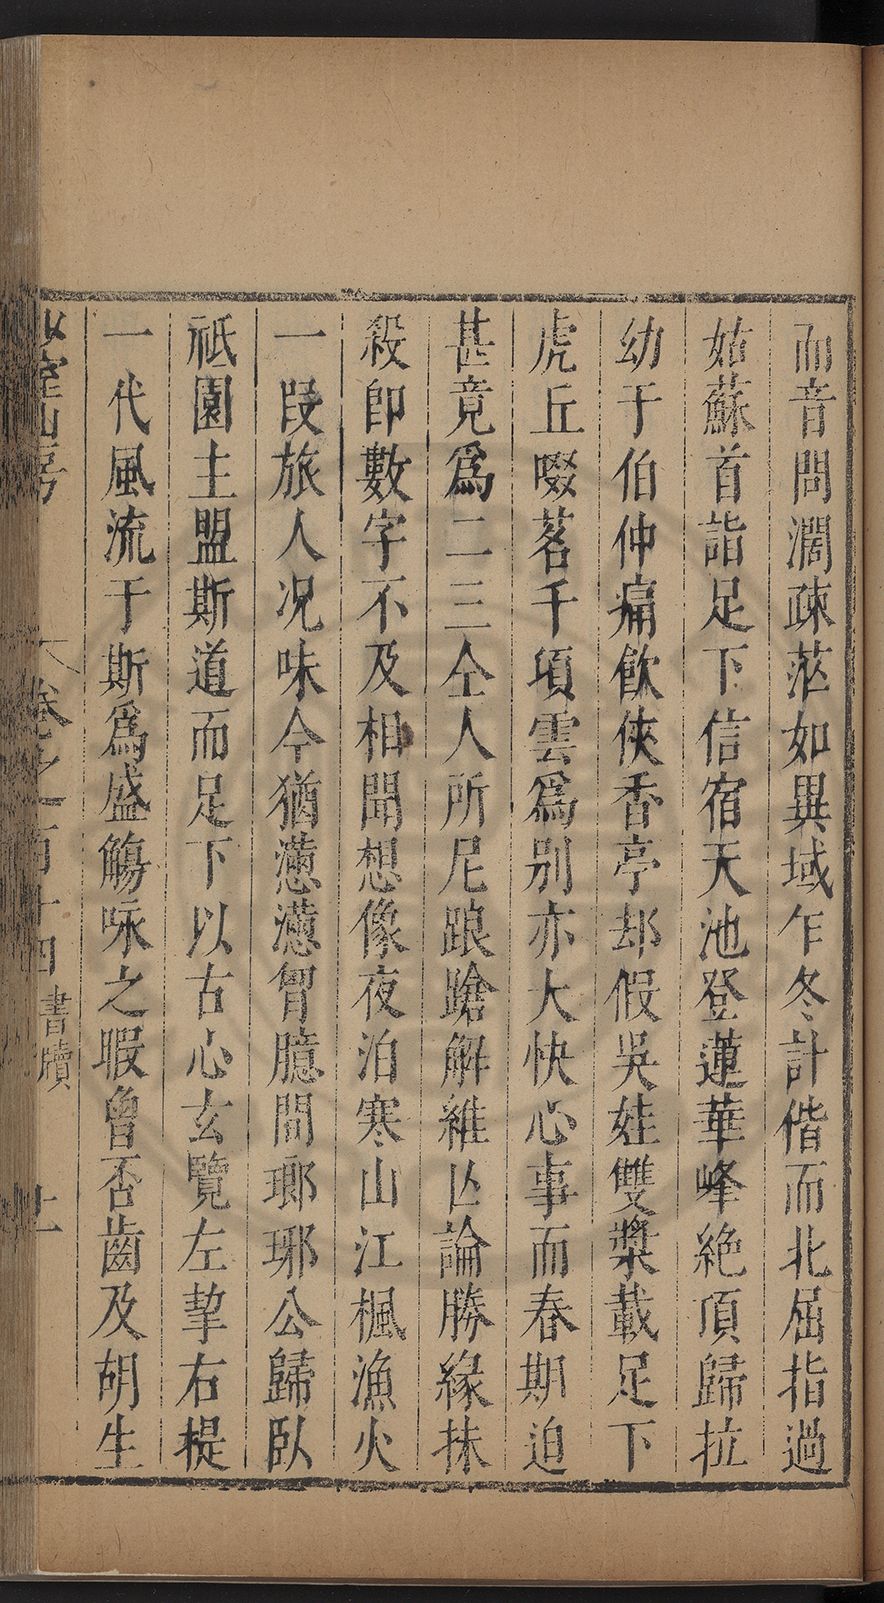 而音問濶疎茫如異域乍冬計偕而北屈指過
姑蘇首詣足下信宿天池登蓮華峰絶頂歸拉
幼于伯仲痛飲俠香亭却假吳娃雙槳載足下
虎丘啜茗千頃雲爲别亦大快心事而春期迫
甚竟爲二三仝人所尼踉蹌解維亾論勝緣抹
殺卽數字不及相聞想像夜泊寒山江楓漁火
一段旅人况味今猶懑懑胷臆間瑯琊公歸臥
祗園主盟斯道而足下以古心玄覽左挈右提
一代風流于斯爲盛觴咏之暇曾否齒及胡生
室山房
卷之百十四
書牘
上